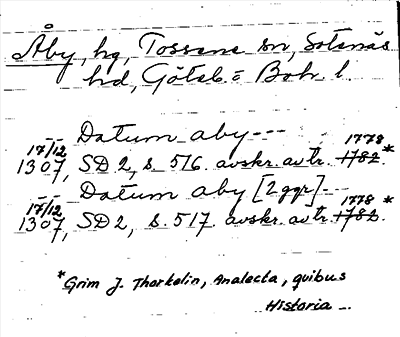 Åby, hg, Tossene sn, Sotenäs
hrd, Göteb = Boh l.
-- Datum aby ---
17/12 1778*
1307, SD 2, s. 516. avskr. av tr. 1782.
-- Datum aby [2 ggr] ---
17/12 1778 *
1307, SD 2, s. 517. avskr. av tr. 1782.
*Grim J. Thorkelin, Analecta, quibus
Historia –